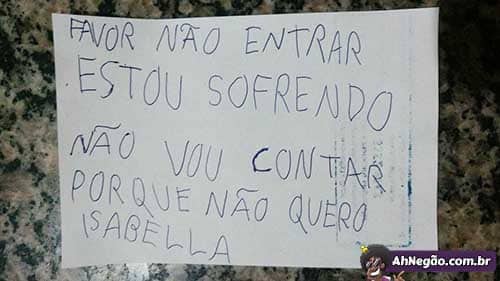 FAVOR NÃO ENTRAR
ESTOU SOFRENDO
NÃO VOU CONTAR
PORQUE NÃO QUERO
ISABELLA
AhNegão.com.br